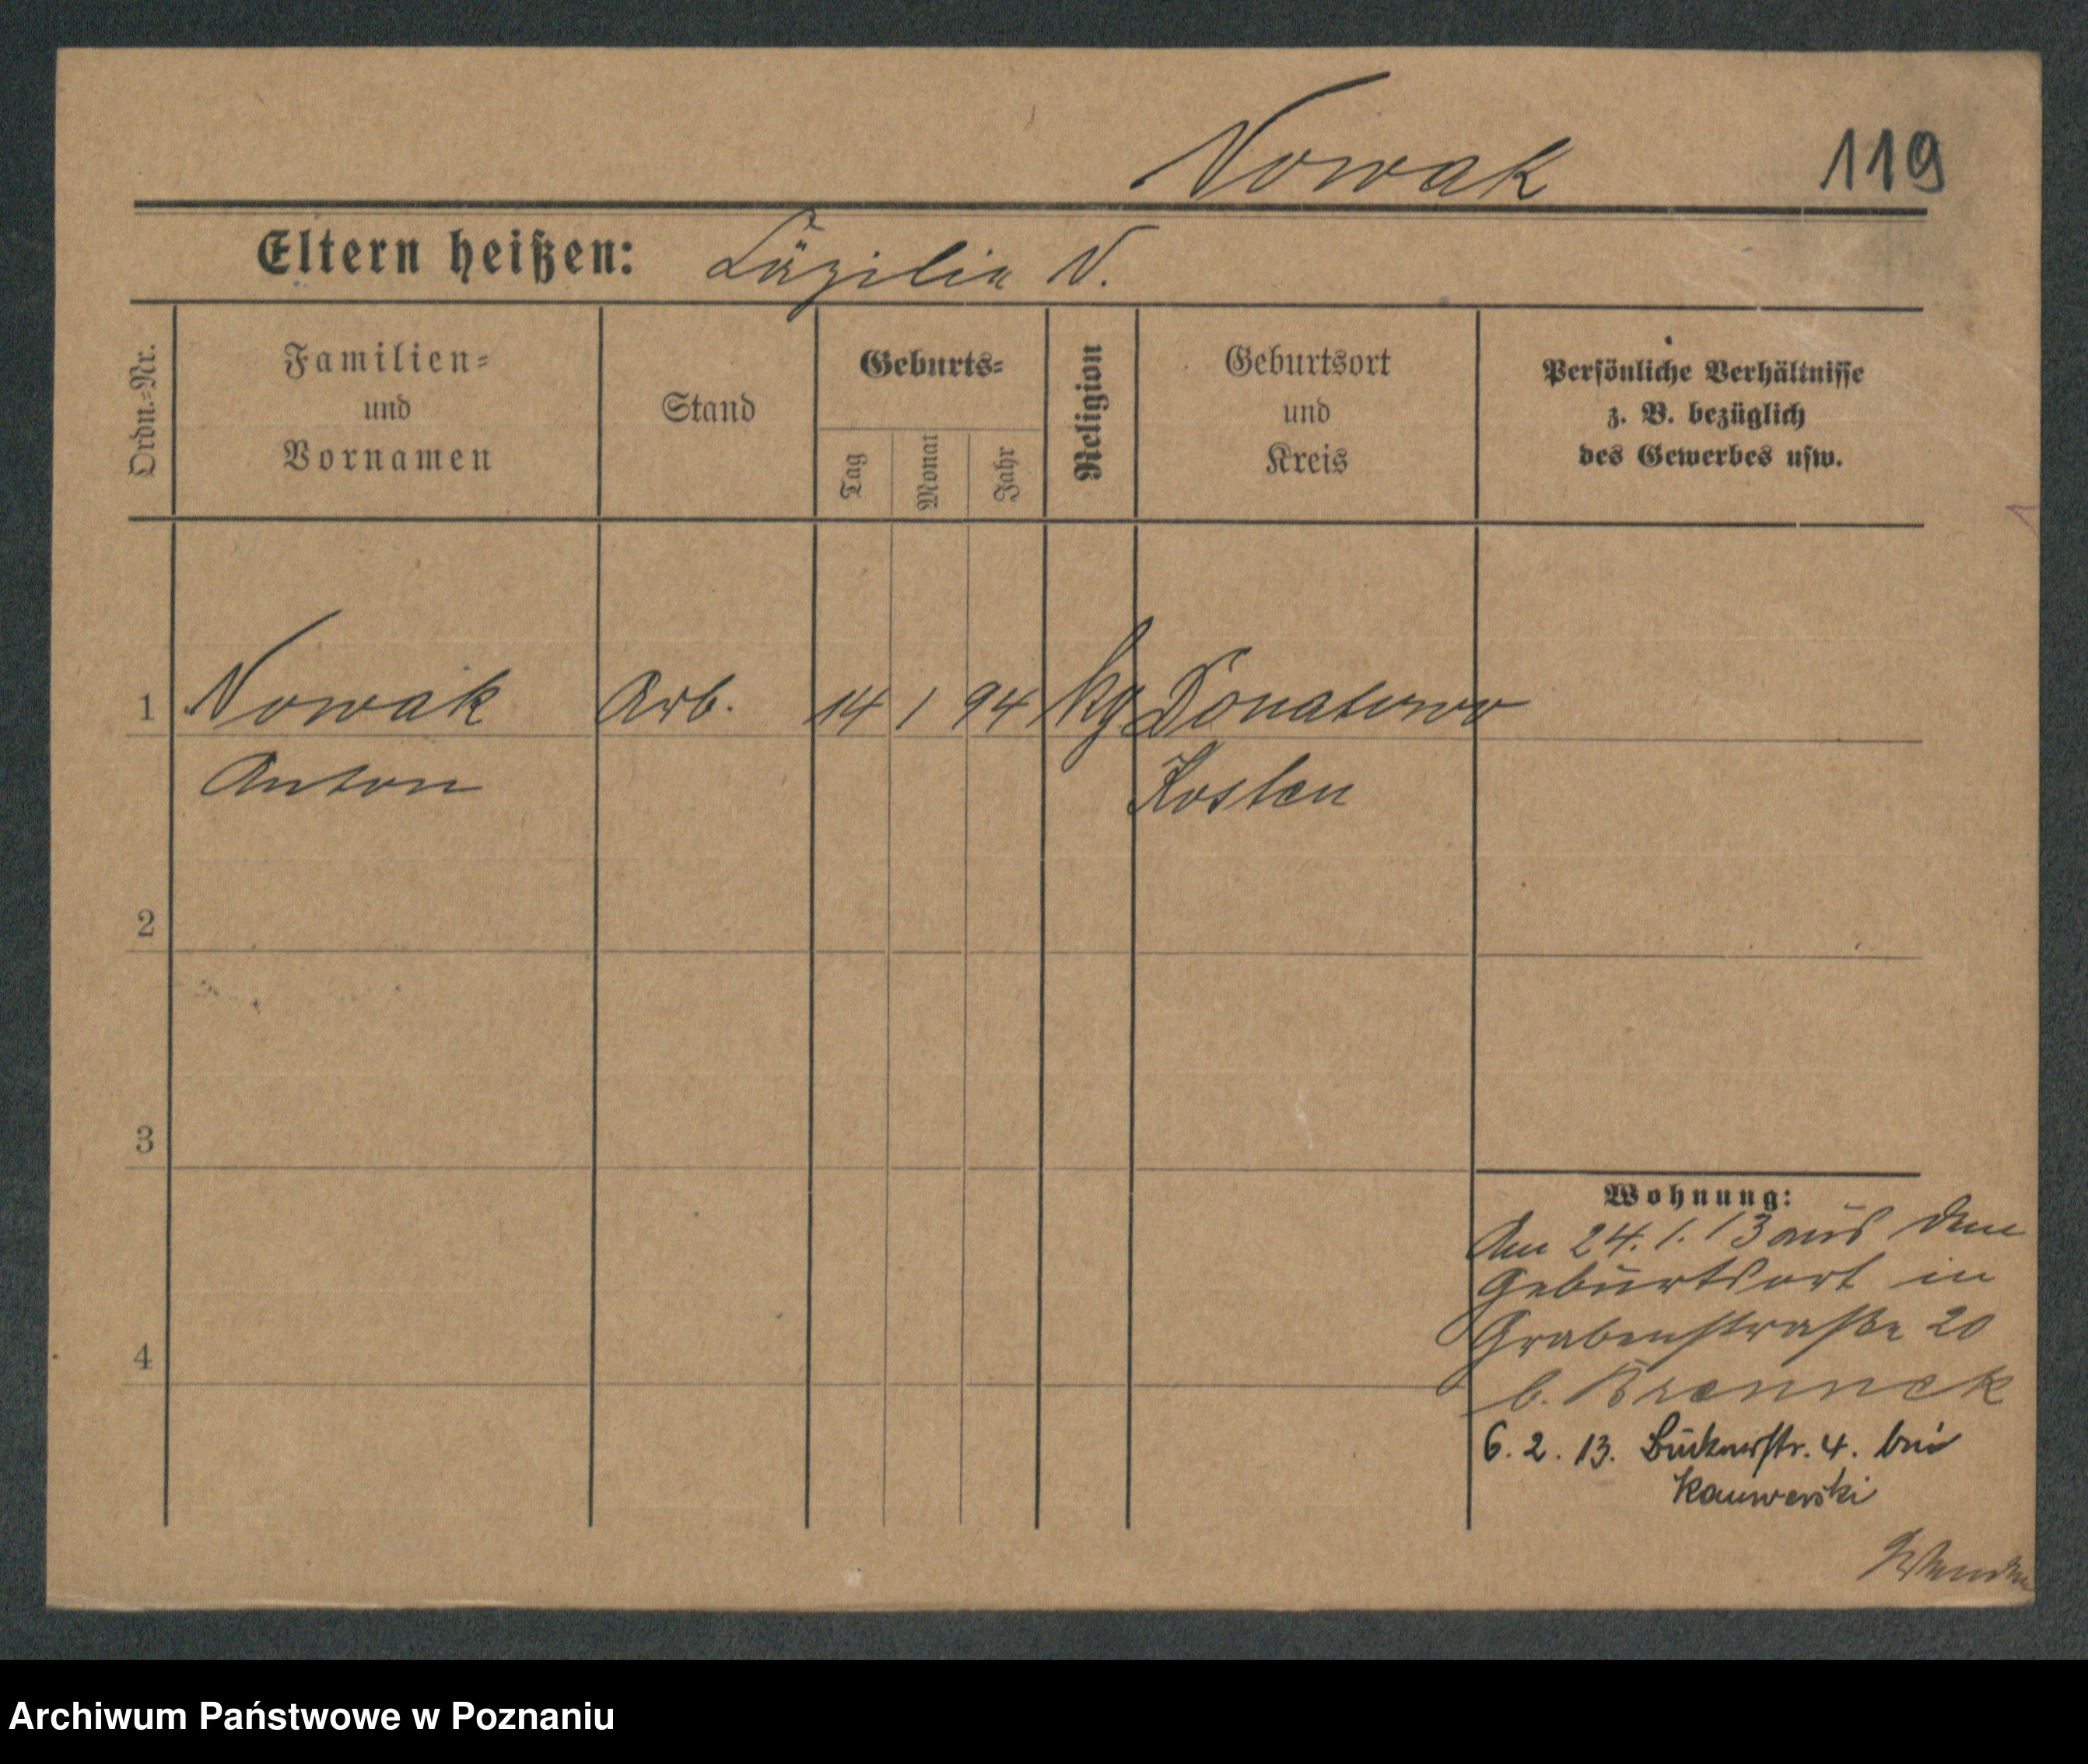 Nowak 119
Eltern heißen: Cäzilie N.
Ordn.=Nr.
Familien=
und
Vornamen
Stand
Geburts=
Tag
Monat
Jahr
Religion
Geburtsort
und
Kreis
Persönliche Verhältnisse
z. B. bezüglich
des Gewerbes usw.
1 Nowak Arb. 14 1 94 kg Donatowo
Anton Kosten
2
3
4
Wohnung:
Am 24.1.13 aus dem
Geburtsort in
Grabenstraße 20
b. Brennek
6.2.13. 4. bei
Archiwum Państwowe w Poznaniu